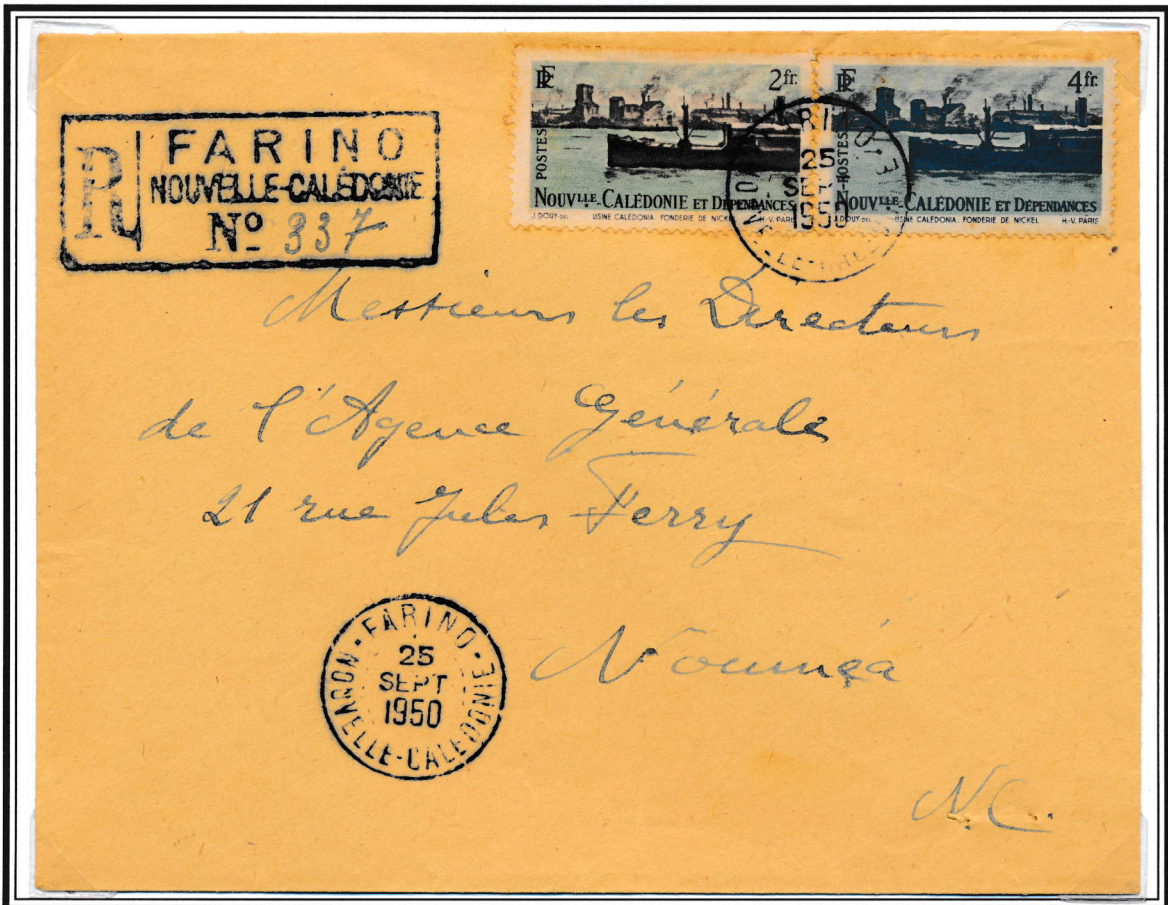 R
FARINO
NOUVELLE-CALÉDONIE
Nº 337
RF
2fr.
POSTES
NOUVLLE CALÉDONIE ET DÉPENDANCES
J. DOUY-DEL USINE CALEDONIA. FONDERIE DE NICKEL H.-V. PARIS
RF
4fr.
POSTES
NOUVLLE CALÉDONIE ET DÉPENDANCES
J. DOUY-DEL USINE CALEDONIA. FONDERIE DE NICKEL H.-V. PARIS
25
SEPT
1950
Messieurs les Directeurs
de l'Agence Générale
21 rue Jules Ferry
Nouméa
N.C.
FARINO
25
SEPT
1950
NOUVELLE-CALEDONIE